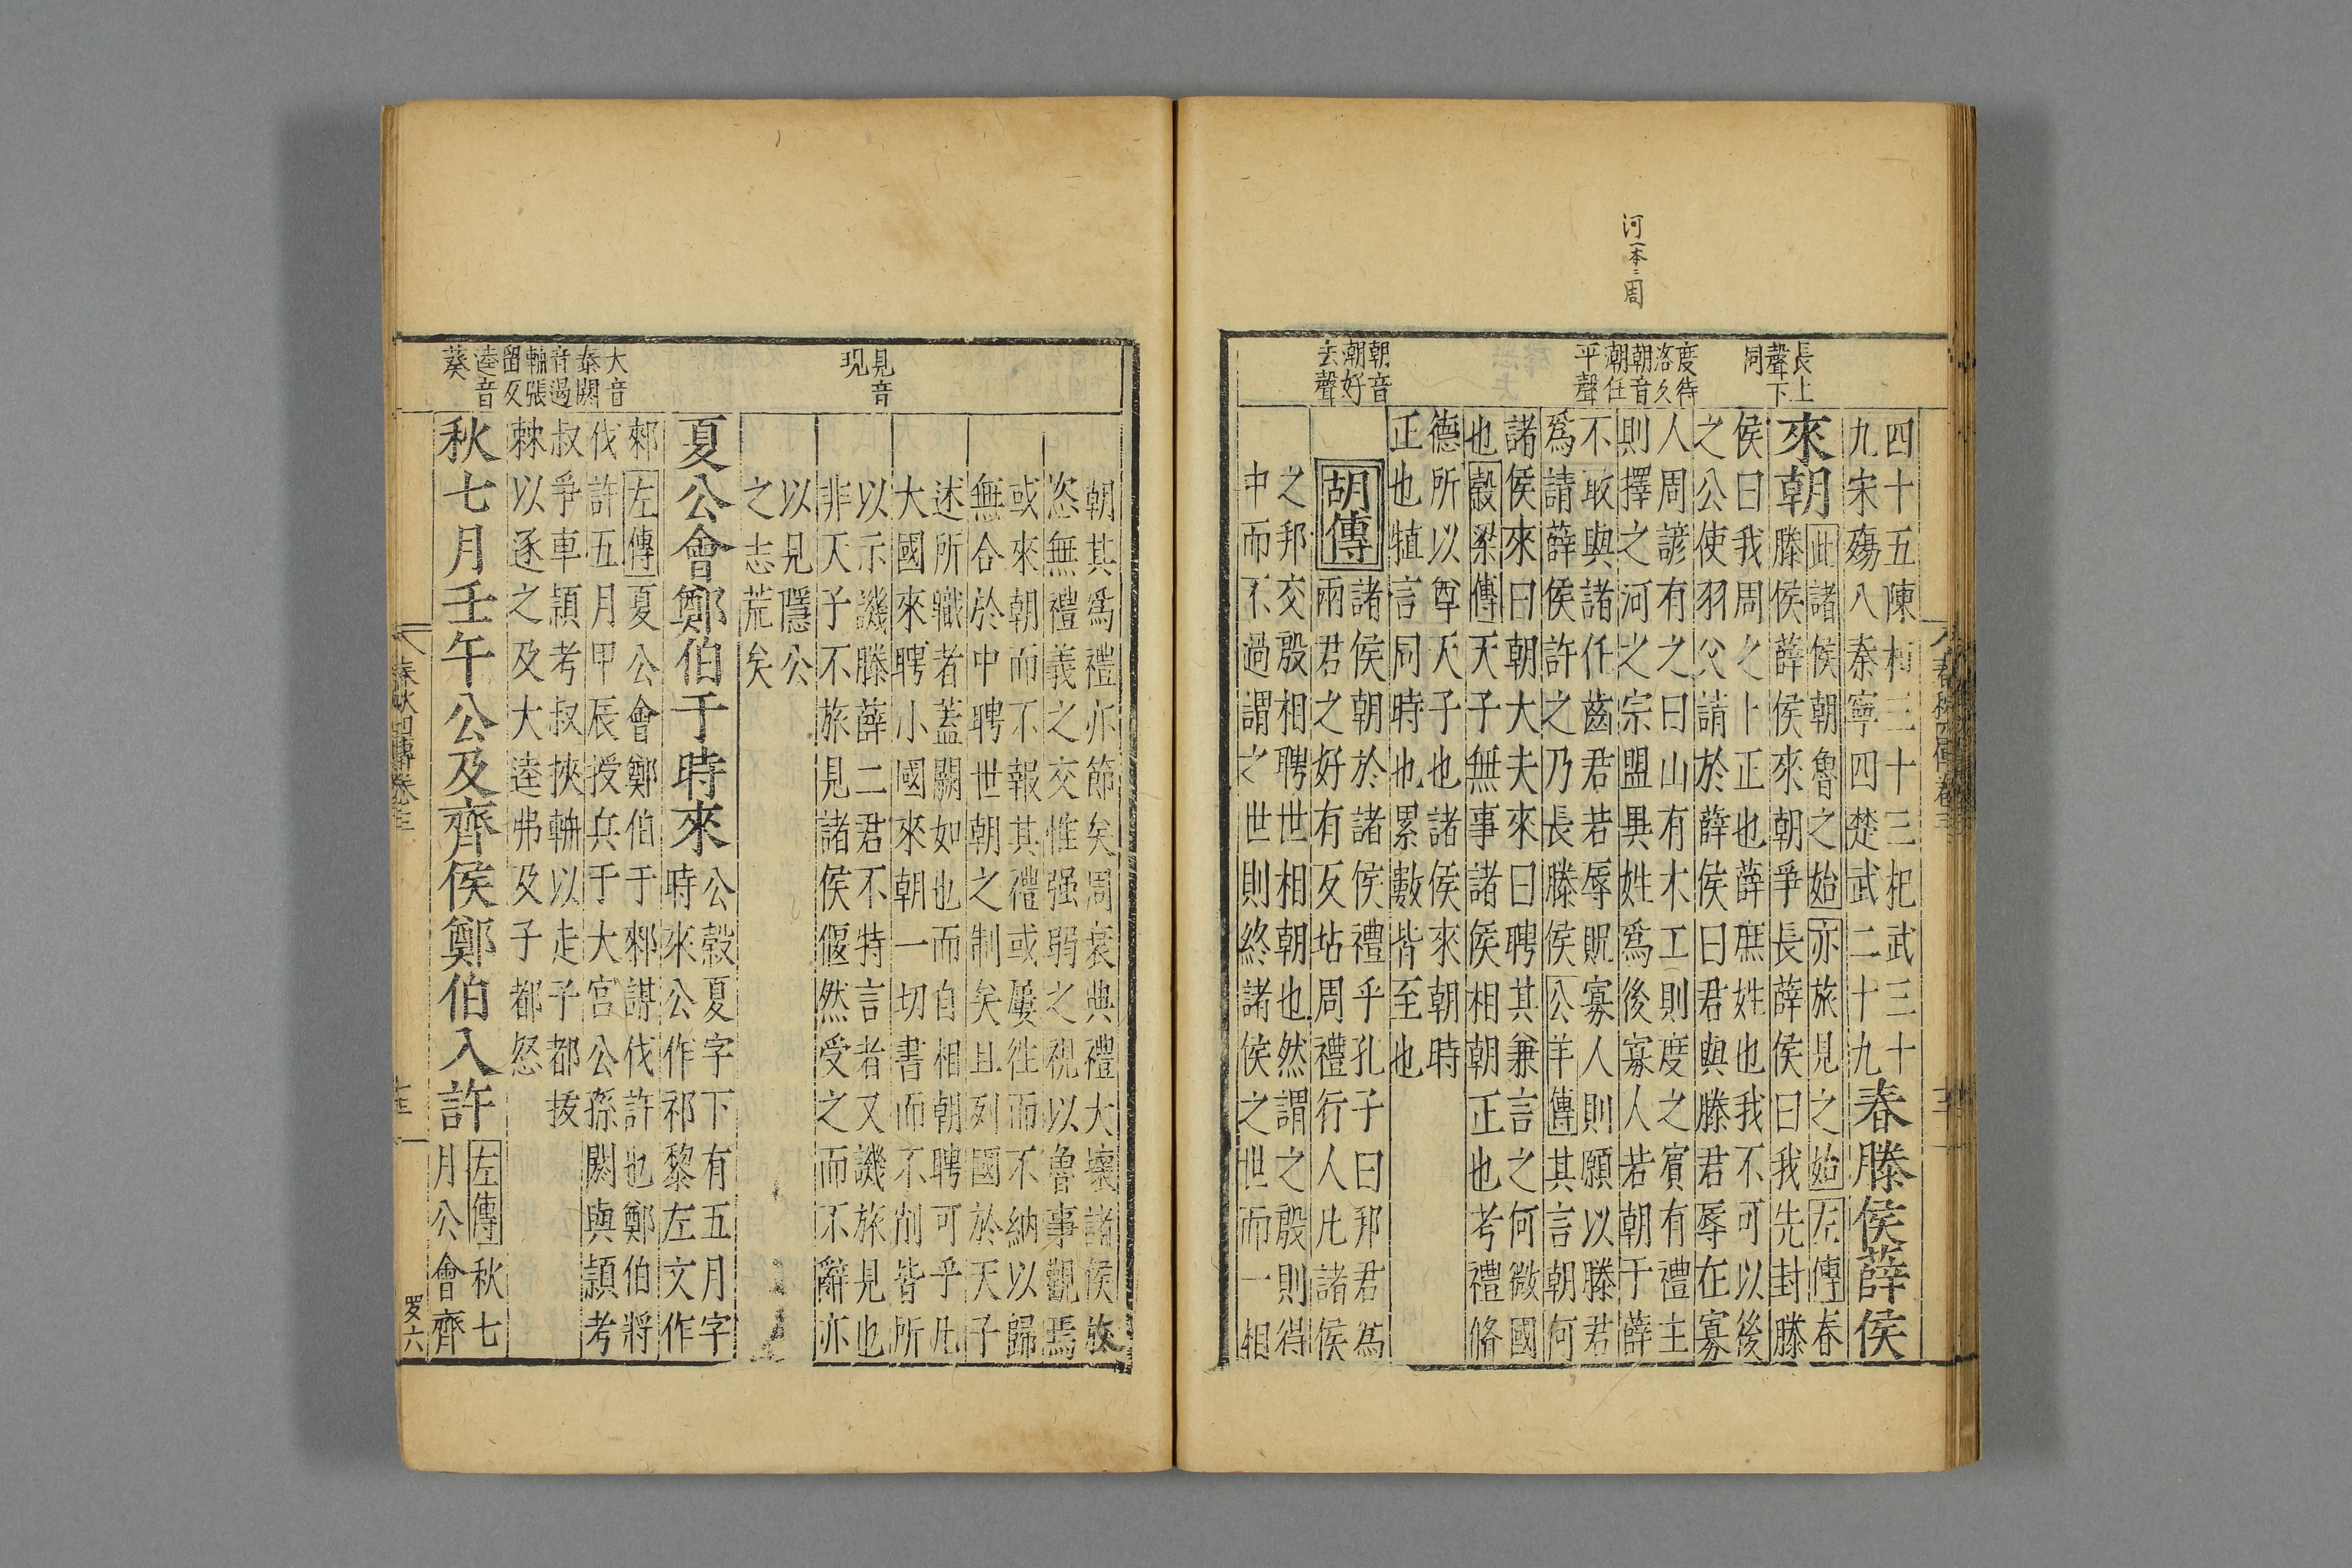 河一本ニ周
長上
聲下
同
度待
洛反
朝音
潮任
平聲
朝音
潮好
去聲
春秋四傳卷三
四十五陳桓三十三杞武三十
九宋殤八秦寧四楚武二十九
春滕侯薛侯
來朝
此諸侯朝魯之始亦旅見之始左傳春
滕侯薛侯來朝爭長薛侯曰我先封滕
侯曰我周之卜正也薛庶姓也我不可以後
之公使羽父請於薛侯曰君與滕君辱在寡
人周諺有之曰山有木工則度之賓有禮主
則擇之河之宗盟異姓爲後寡人若朝于薛
不敢與諸任齒君若辱貺寡人則願以滕君
爲請薛侯許之乃長滕侯公羊傳其言朝何
諸侯來曰朝大夫來曰聘其兼言之何微國
也穀梁傳天子無事諸侯相朝正也考禮脩
德所以尊天子也諸侯來朝時
正也犆言同時也累數皆至也
胡傳
諸侯朝於諸侯禮乎孔子曰邦君為
兩君之好有反坫周禮行人凡諸侯
之邦交殷相聘世相朝也然謂之殷則得
中而不過謂之世則終諸侯之世而一相
見音
現
大音
泰閼
音遏
輈張
留反
逵音
葵
朝其爲禮亦節矣周衰典禮大壞諸侯放
恣無禮義之交惟强弱之視以魯事觀焉
或來朝而不報其禮或屢往而不納以歸
無合於中聘世朝之制矣且列國於天子
述所職者蓋闕如也而自相朝聘可乎凡
大國來聘小國來朝一切書而不削皆所
以示譏滕薛二君不特言者又譏旅見也
非天子不旅見諸侯偃然受之而不辭亦
以見隱公
之志荒矣
夏公會鄭伯于時來
公穀夏字下有五月字
時來公作祁黎左文作
郲左傳夏公會鄭伯于郲謀伐許也鄭伯將
伐許五月甲辰授兵于大宮公孫閼與潁考
叔爭車潁考叔挾輈以走子都拔
棘以逐之及大逵弗及子都怒
秋七月壬午公及齊侯鄭伯入許
左傳秋七
月公會齊
春秋四傳卷三
十三
罗六